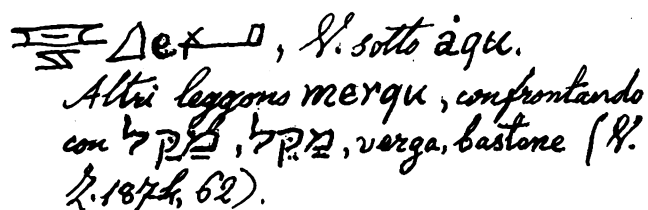 , V. sotto ȧqu.
Altri leggono merqu, confrontando
con מַקֵּל, מַקֵל, verga, bastone (V.
Z. 1874, 62).